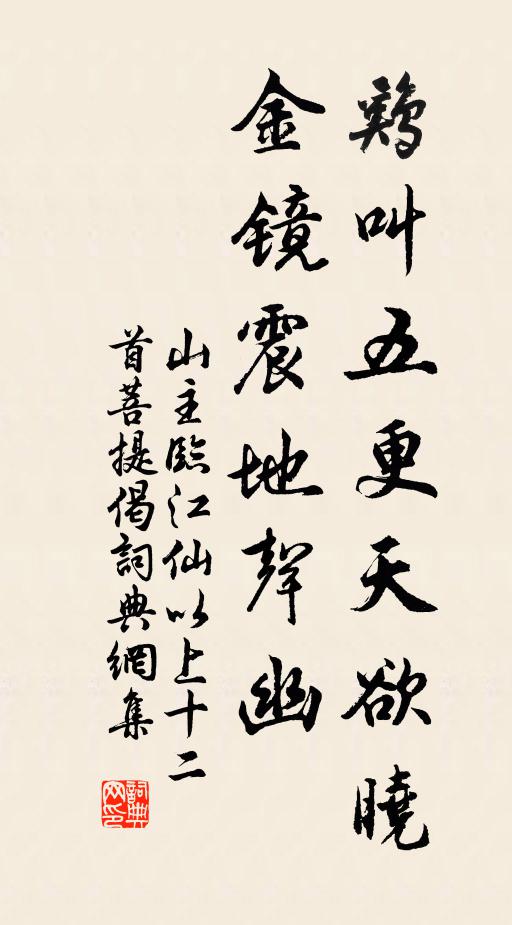 鷄叫五更天欲曉
金鏡震地聲幽
山主臨江仙以上十二
首菩提偈詞典網集
詞典
网印